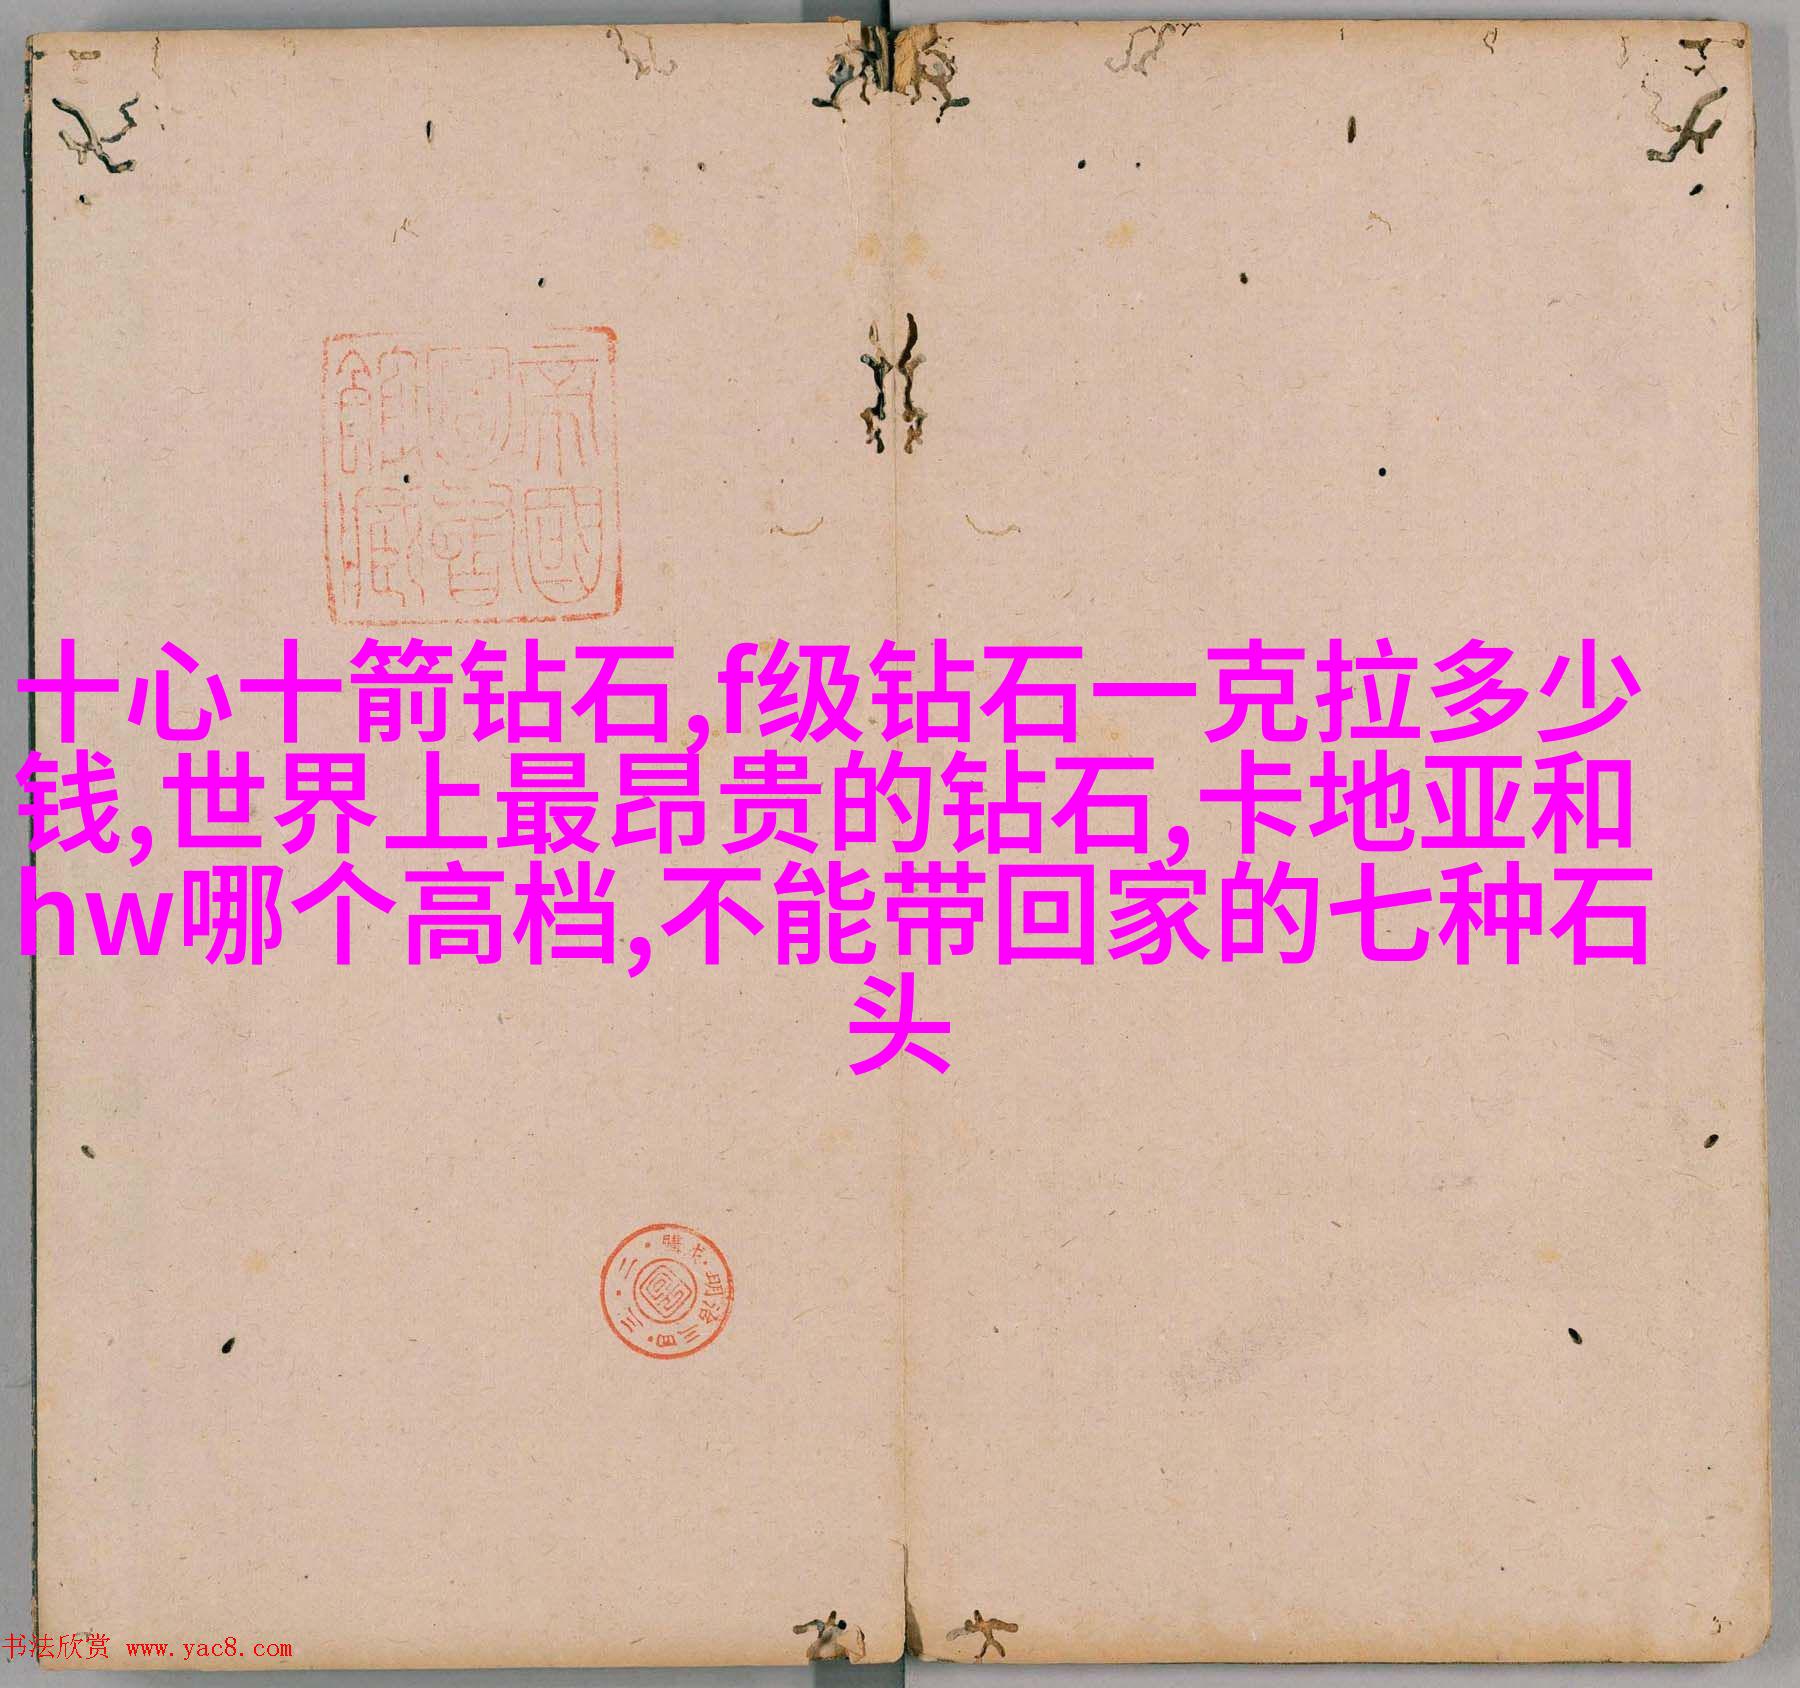 帝國
圖書
館藏
十心十箭钻石,f级钻石一克拉多少
钱,世界上最昂贵的钻石,卡地亚和
hw哪个高档,不能带回家的七种石
头
明治三四·三·二·購求·
书法欣赏 www.yac8.com